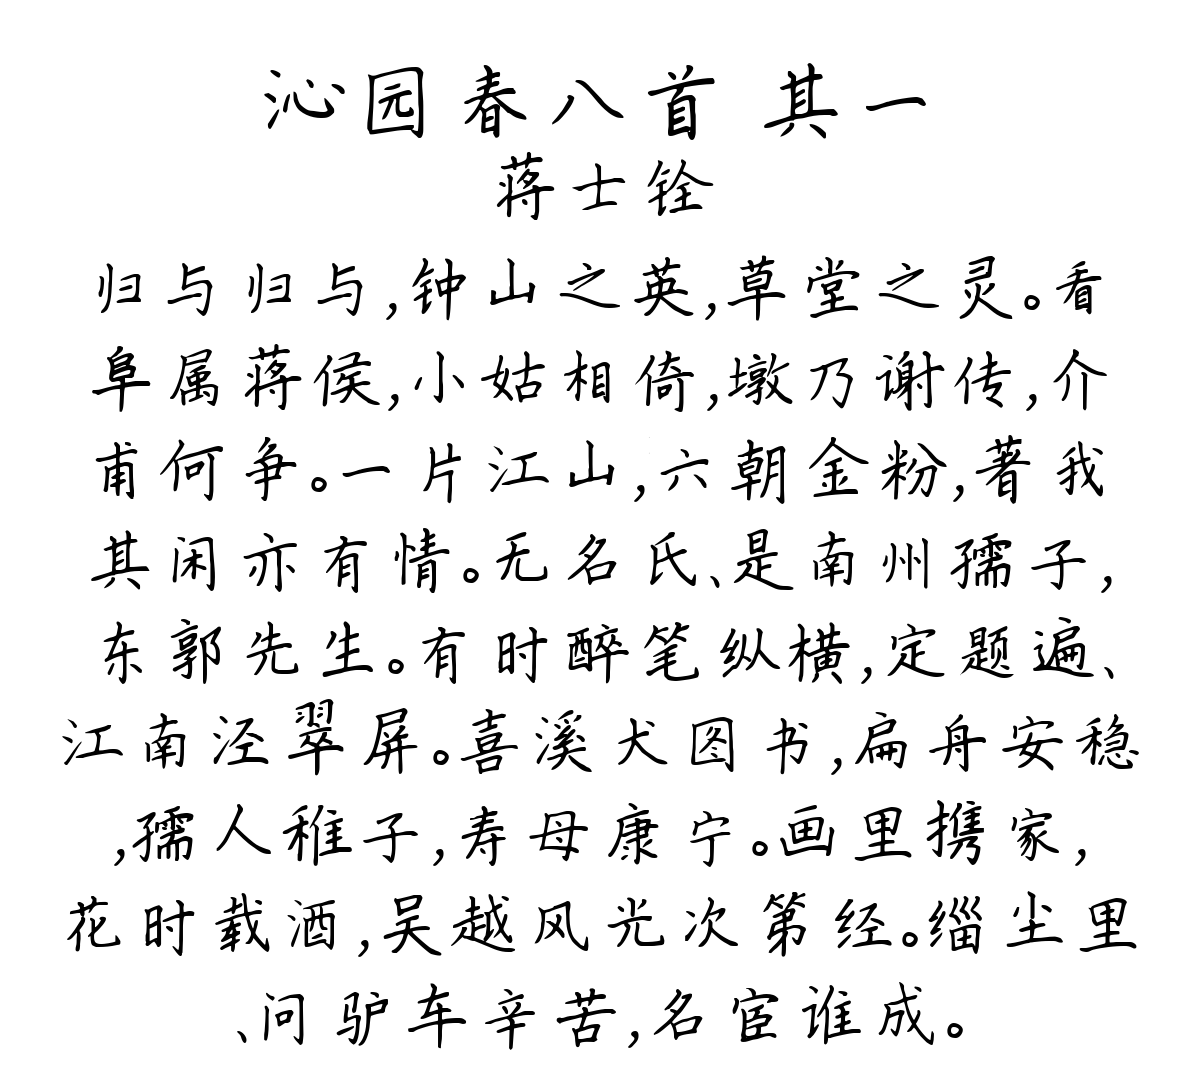 沁园春八首 其一
蒋士铨
归与归与,钟山之英,草堂之灵。看
阜属蒋侯,小姑相倚,墩乃谢传,介
甫何争。一片江山,六朝金粉,著我
其闲亦有情。无名氏、是南州孺子,
东郭先生。有时醉笔纵横,定题遍、
江南泾翠屏。喜溪犬图书,扁舟安稳
,孺人稚子,寿母康宁。画里携家,
花时载酒,吴越风光次第经。缁尘里
、问驴车辛苦,名宦谁成。